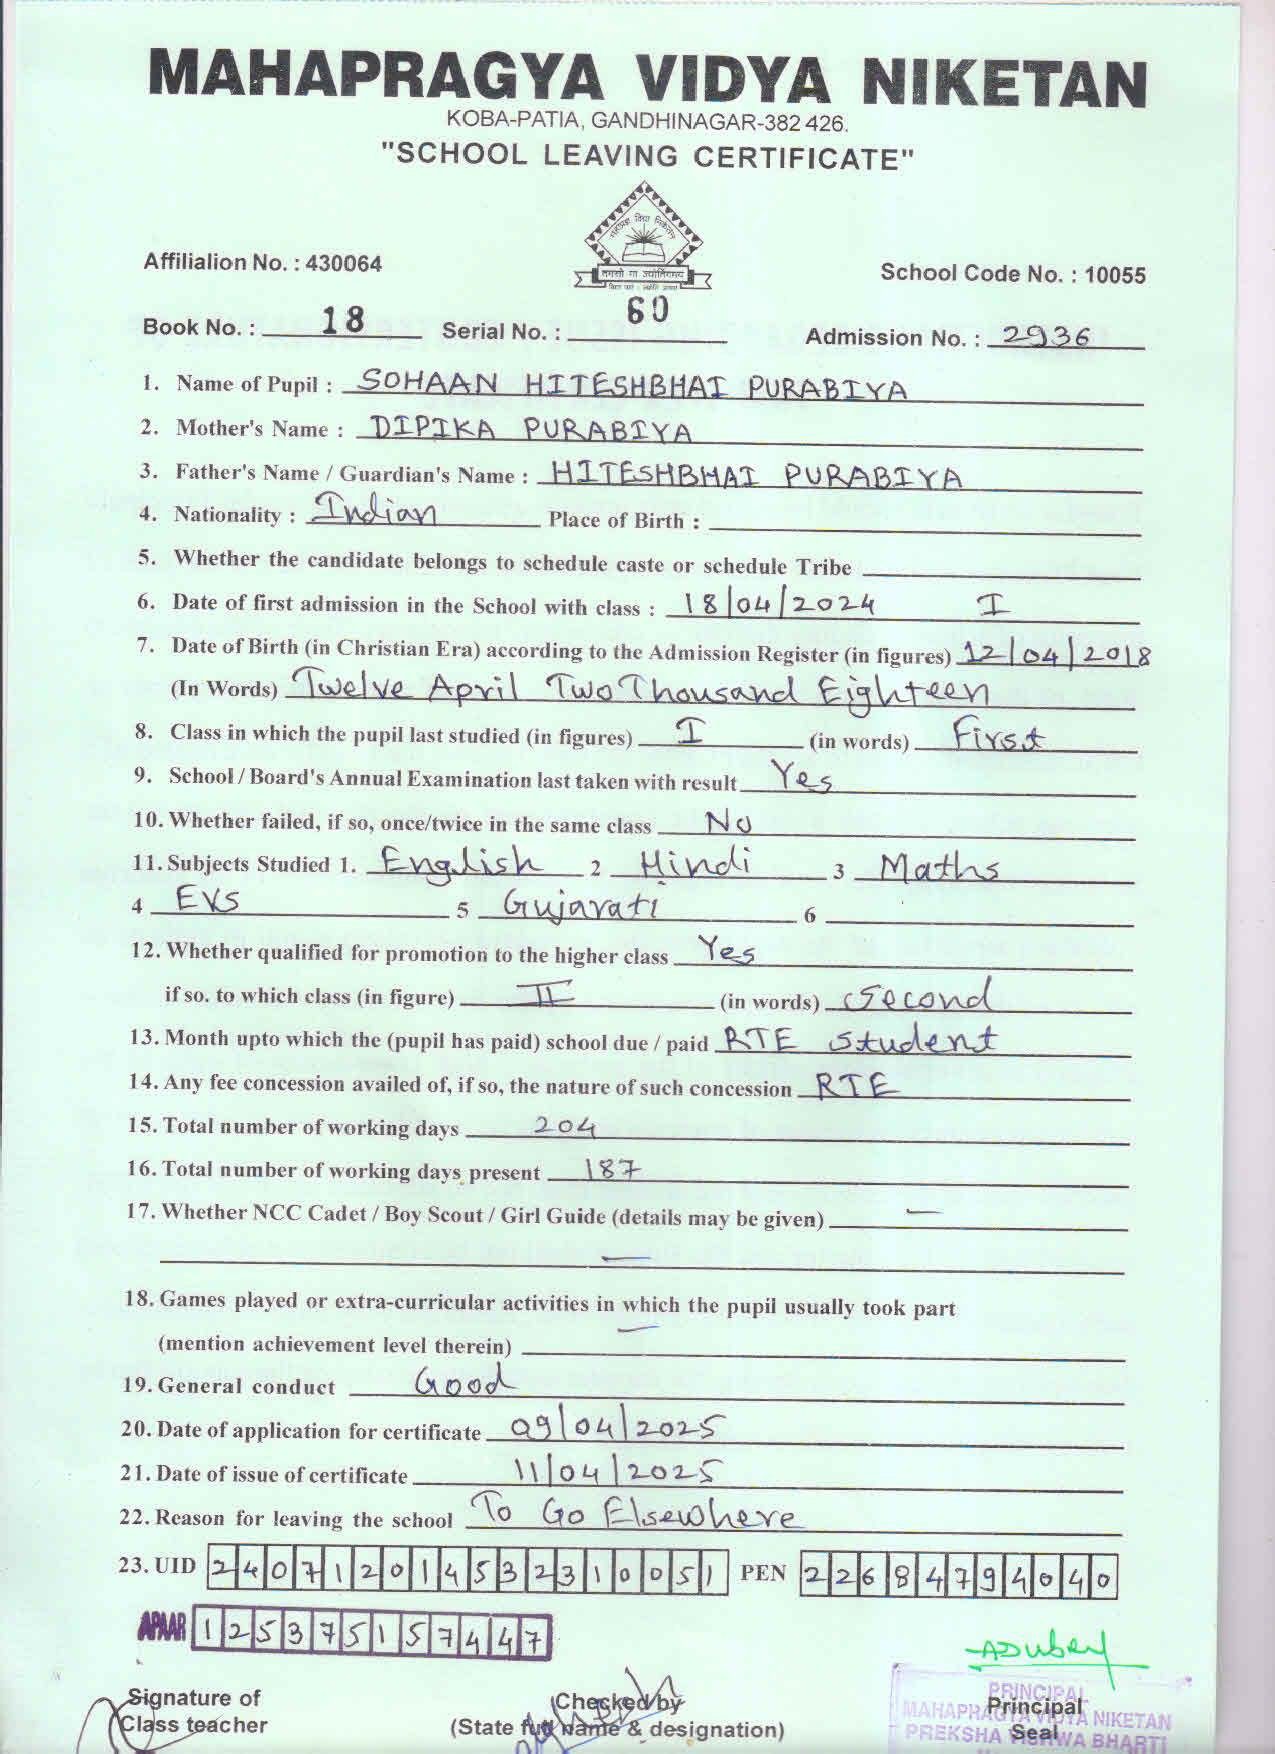 MAHAPRAGYA VIDYA NIKETAN
KOBA-PATIA, GANDHINAGAR-382 426.
"SCHOOL LEAVING CERTIFICATE"
महाप्रज्ञ विद्या निकेतन
तमसो मा ज्योतिर्गमय
Affilialion No. : 430064
School Code No. : 10055
Book No. : 18 Serial No. : 60 Admission No. : 2936
1. Name of Pupil : SOHAAN HITESHBHAI PURABIYA
2. Mother's Name : DIPIKA PURABIYA
3. Father's Name / Guardian's Name : HITESHBHAI PURABIYA
4. Nationality : Indian Place of Birth :
5. Whether the candidate belongs to schedule caste or schedule Tribe
6. Date of first admission in the School with class : 18/04/2024 I
7. Date of Birth (in Christian Era) according to the Admission Register (in figures) 12/04/2018
(In Words) Twelve April Two Thousand Eighteen
8. Class in which the pupil last studied (in figures) I (in words) First
9. School / Board's Annual Examination last taken with result Yes
10. Whether failed, if so, once/twice in the same class No
11. Subjects Studied 1. English 2 Hindi 3 Maths
4 EVS 5 Gujarati 6
12. Whether qualified for promotion to the higher class Yes
if so. to which class (in figure) II (in words) Second
13. Month upto which the (pupil has paid) school due / paid RTE student
14. Any fee concession availed of, if so, the nature of such concession RTE
15. Total number of working days 204
16. Total number of working days present 187
17. Whether NCC Cadet / Boy Scout / Girl Guide (details may be given) —
—
18. Games played or extra-curricular activities in which the pupil usually took part
(mention achievement level therein) —
19. General conduct Good
20. Date of application for certificate 09/04/2025
21. Date of issue of certificate 11/04/2025
22. Reason for leaving the school To Go Elsewhere
23. UID 240712014532310051 PEN 22684794040
APAAR 125375157447
ADubey
Signature of
Class teacher
Checked by
(State full name & designation)
Principal
Seal
PRINCIPAL
MAHAPRAGYA VIDYA NIKETAN
PREKSHA VISHWA BHARTI